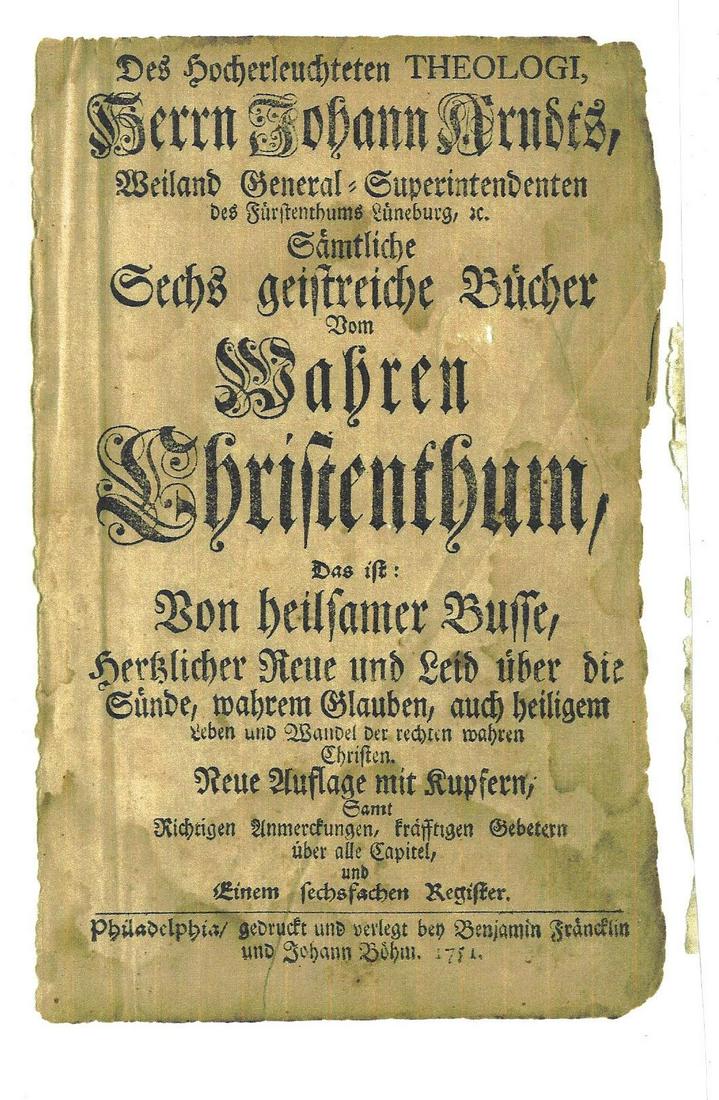 Des Hocherleuchteten THEOLOGI,
Herrn Johann Arndts,
Weiland General-Superintendenten
des Fürstenthums Lüneburg, ꝛc.
Sämtliche
Sechs geistreiche Bücher
Vom
Wahren
Christenthum,
Das ist:
Von heilsamer Busse,
Hertzlicher Reue und Leid über die
Sünde, wahrem Glauben, auch heiligem
Leben und Wandel der rechten wahren
Christen.
Neue Auflage mit Kupfern,
Samt
Richtigen Anmerckungen, kräfftigen Gebetern
über alle Capitel,
und
Einem sechsfachen Register.
Philadelphia/ gedruckt und verlegt bey Benjamin Fräncklin
und Johann Böhm. 1751.